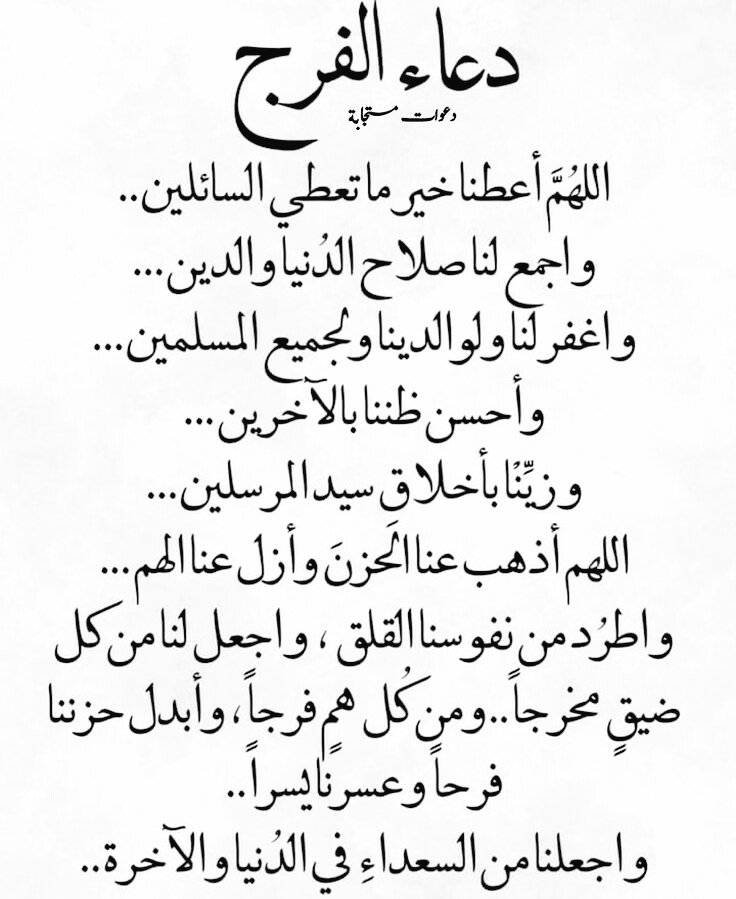 دعاء الفرج
دعوات مستجابة
اللهُمَّ أعطنا خير ما تعطي السائلين..
واجمع لنا صلاح الدُنيا والدين...
واغفر لنا ولوالدينا ولجميع المسلمين...
وأحسن ظننا بالآخرين...
وزيِّنْا بأخلاق سيد المرسلين...
اللهم أذهب عنا الحَزنَ وأزل عنا الهم...
واطرُد من نفوسنا القلق ، واجعل لنا من كل
ضيقٍ مخرجاً..ومن كُل همٍ فرجاً، وأبدل حزننا
فرحاً وعسرنا يسراً..
واجعلنا من السعداءِ في الدُنيا والآخرة..